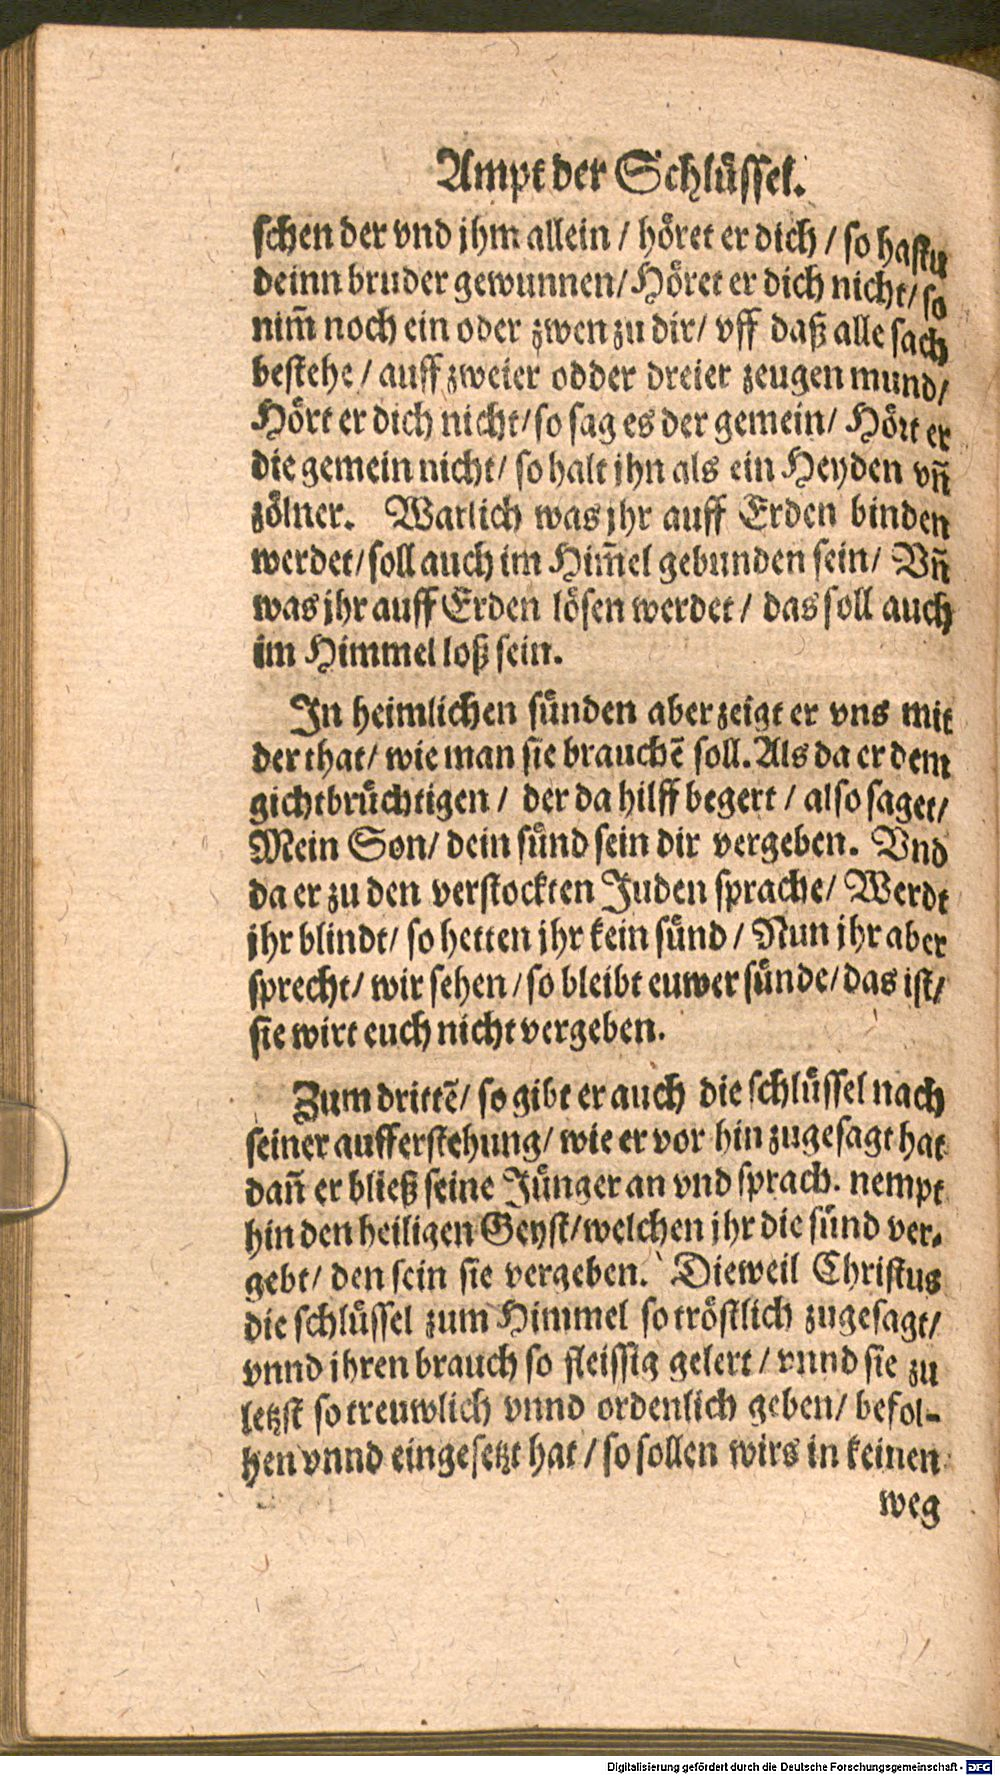 Ampt der Schlüssel.
schen der vnd jhm allein / höret er dich / so hastu
deinn bruder gewunnen / Höret er dich nicht / so
nim̃ noch ein oder zwen zu dir / vff daß alle sach
bestehe / auff zweier odder dreier zeugen mund /
Hört er dich nicht / so sag es der gemein / Hört er
die gemein nicht / so halt jhn als ein Heyden vñ
zölner. Warlich was jhr auff Erden binden
werdet / soll auch im Him̃el gebunden sein / Vñ
was jhr auff Erden lösen werdet / das soll auch
im Himmel loß sein.
In heimlichen sünden aber zeigt er vns mit
der that / wie man sie brauchẽ soll. Als da er dem
gichtbrüchtigen / der da hilff begert / also saget /
Mein Son / dein sünd sein dir vergeben. Vnd
da er zu den verstockten Juden sprache / Werdt
jhr blindt / so hetten jhr kein sünd / Nun jhr aber
sprecht / wir sehen / so bleibt euwer sünde / das ist /
sie wirt euch nicht vergeben.
Zum drittẽ / so gibt er auch die schlüssel nach
seiner aufferstehung / wie er vor hin zugesagt hat
dañ er bließ seine Jünger an vnd sprach. nempt
hin den heiligen Geyst / welchen jhr die sünd ver-
gebt / den sein sie vergeben. Dieweil Christus
die schlüssel zum Himmel so tröstlich zugesagt /
vnnd ihren brauch so fleissig gelert / vnnd sie zu
letzst so treuwlich vnnd ordenlich geben / befol-
hen vnnd eingesetzt hat / so sollen wirs in keinen
weg
Digitalisierung gefördert durch die Deutsche Forschungsgemeinschaft - DFG